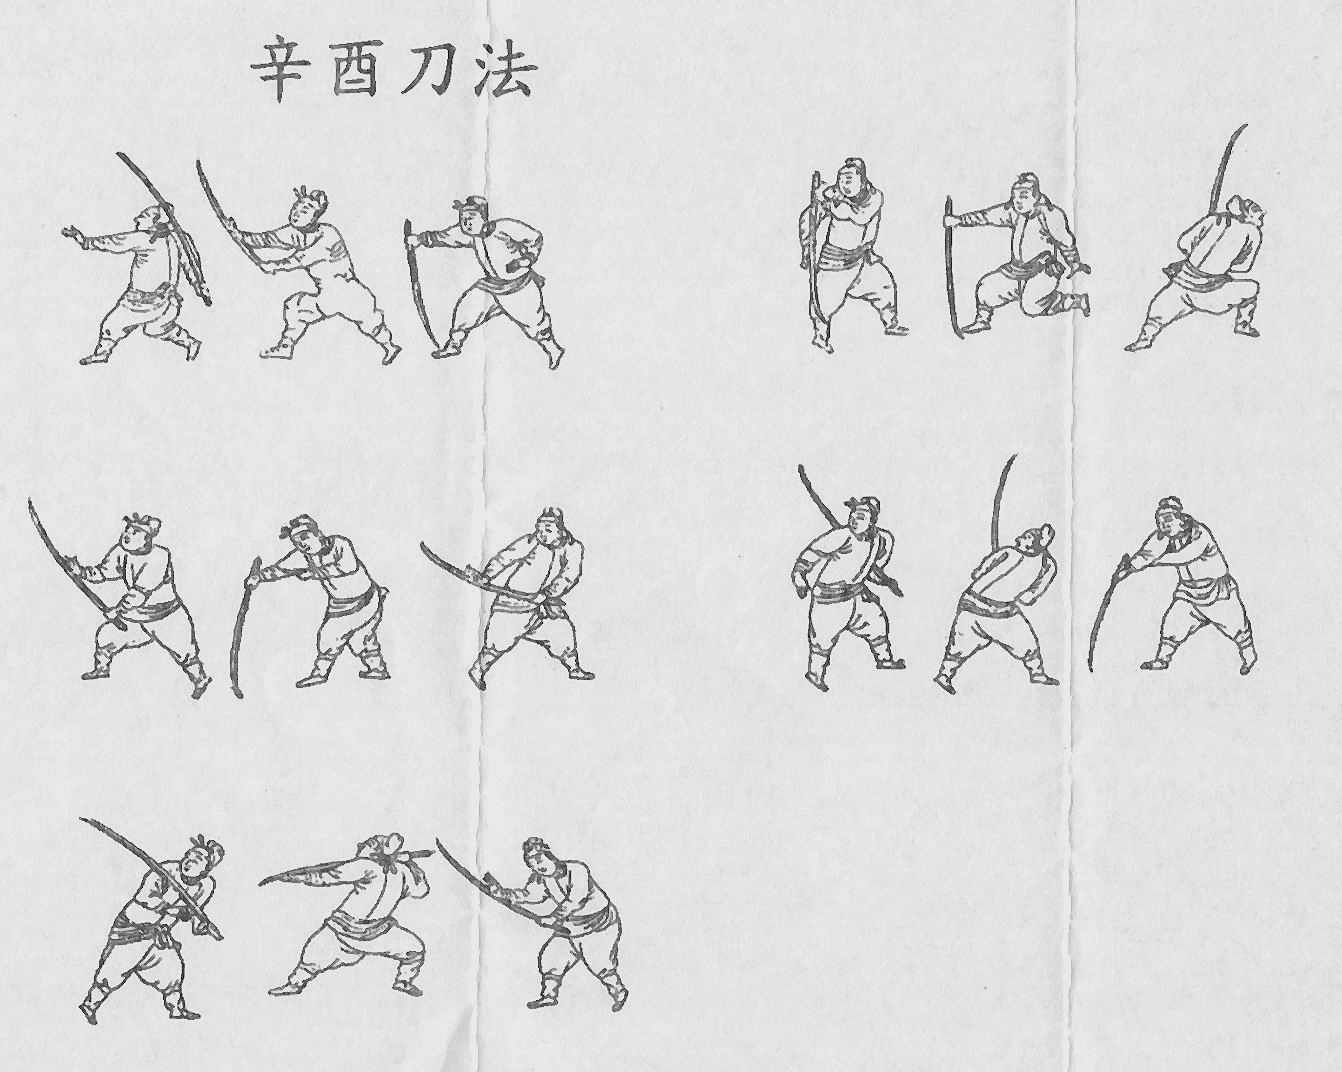 辛酉刀法